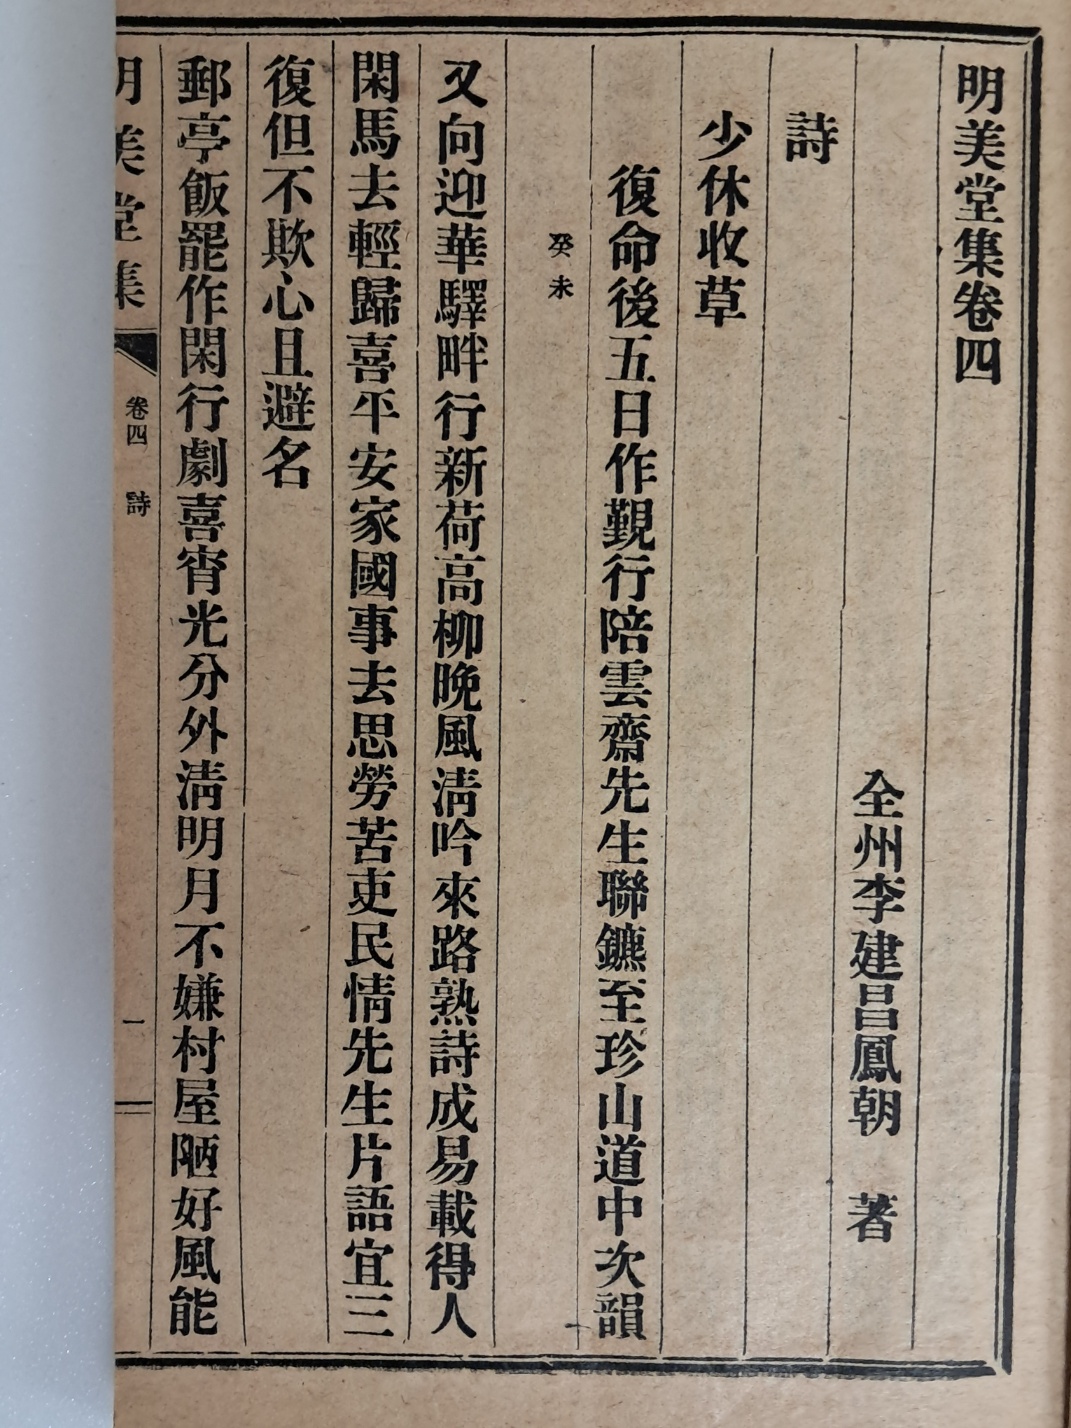 明美堂集卷四
全州李建昌鳳朝 著
詩
少休收草
復命後五日作覲行陪雲齋先生聯鑣至珍山道中次韻
癸未
又向迎華驛畔行新荷高柳晩風淸吟來路熟詩成易載得人
閑馬去輕歸喜平安家國事去思勞苦吏民情先生片語宜三
復但不欺心且避名
郵亭飯罷作閑行劇喜宵光分外淸明月不嫌村屋陋好風能
明美堂集 卷四 詩 一